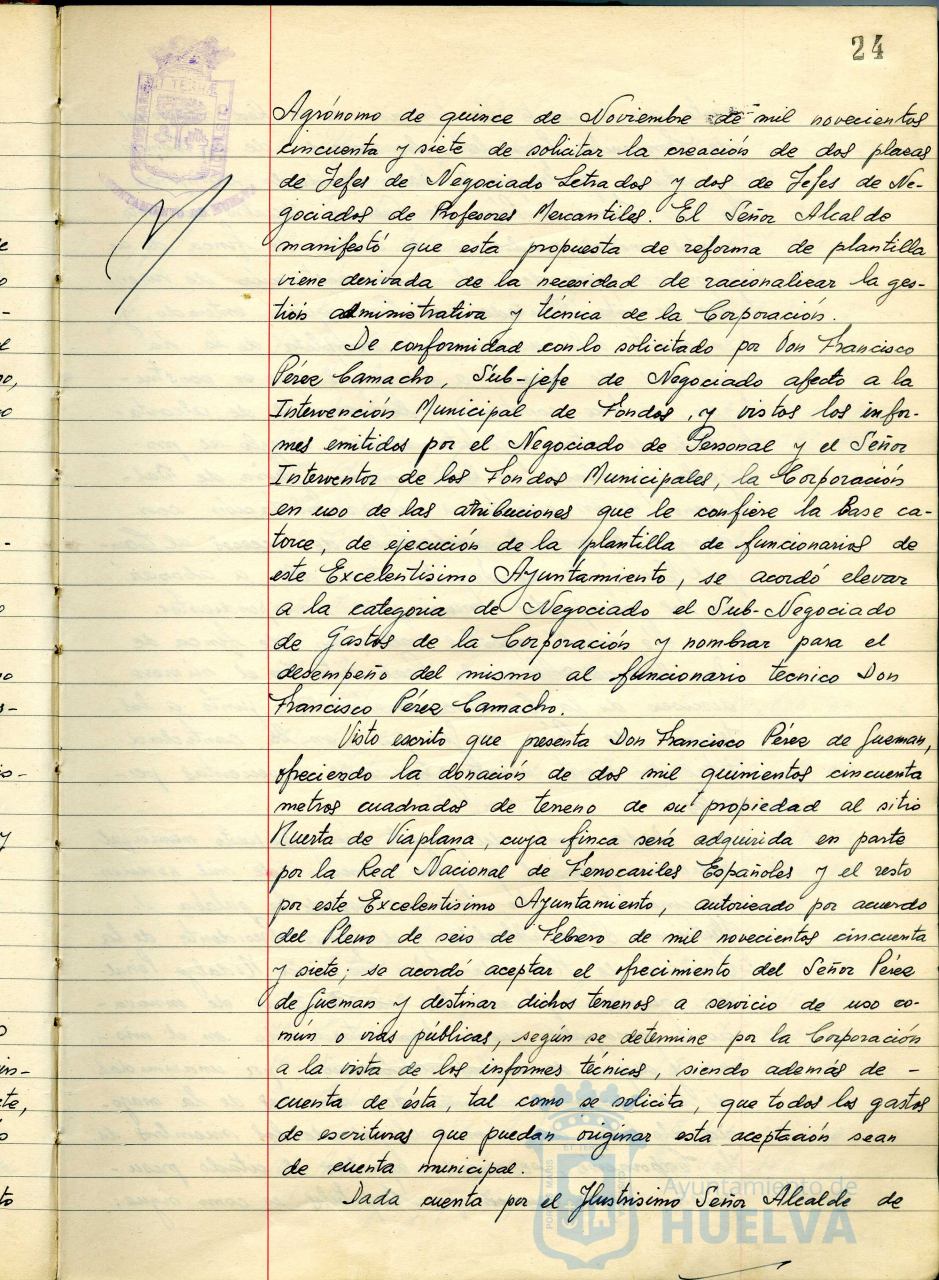 24
Agrónomo de quince de Noviembre de mil novecientos
cincuenta y siete de solicitar la creación de dos plazas
de Jefes de Negociado Letrados y dos de Jefes de Ne-
gociados de Profesores Mercantiles. El Señor Alcalde
manifestó que esta propuesta de reforma de plantilla
viene derivada de la necesidad de racionalizar la ges-
tión administrativa y técnica de la Corporación.
De conformidad con lo solicitado por Don Francisco
Pérez Camacho, Sub-jefe de Negociado afecto a la
Intervención Municipal de Fondos, y vistos los infor-
mes emitidos por el Negociado de Personal y el Señor
Interventor de los Fondos Municipales, la Corporación
en uso de las atribuciones que le confiere la Base ca-
torce, de ejecución de la plantilla de funcionarios de
este Excelentisimo Ayuntamiento, se acordó elevar
a la categoria de Negociado el Sub-Negociado
de Gastos de la Corporación y nombrar para el
desempeño del mismo al funcionario tecnico Don
Francisco Pérez Camacho.
Visto escrito que presenta Don Francisco Pérez de Guzman,
ofreciendo la donación de dos mil quinientos cincuenta
metros cuadrados de terreno de su propiedad al sitio
Huerta de Viaplana, cuya finca será adquirida en parte
por la Red Nacional de Ferrocariles Españoles y el resto
por este Excelentisimo Ayuntamiento, autorizado por acuerdo
del Pleno de seis de Febrero de mil novecientos cincuenta
y siete; se acordó aceptar el ofrecimiento del Señor Pérez
de Guzman y destinar dichos terrenos a servicio de uso co-
mún o vias públicas, según se determine por la Corporación
a la vista de los informes técnicos, siendo además de -
cuenta de ésta, tal como se solicita, que todos los gastos
de escrituras que puedan originar esta aceptación sean
de cuenta municipal.
Dada cuenta por el Ilustrisimo Señor Alcalde de
Ayuntamiento de
HUELVA